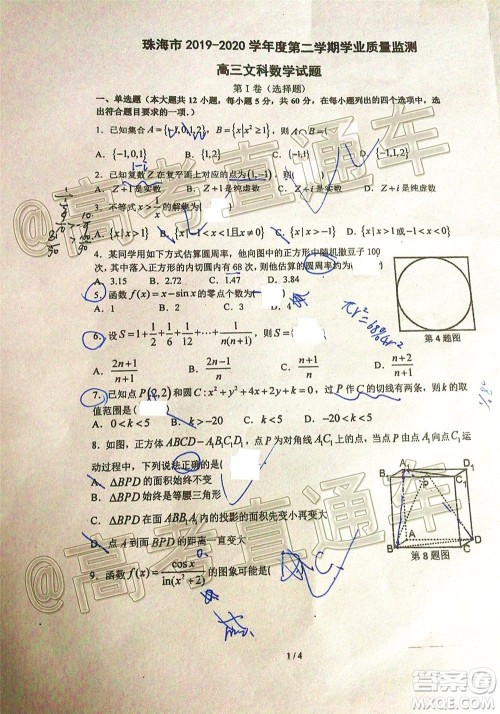 珠海市 2019-2020 学年度第二学期学业质量监测
高三文科数学试题
第 I 卷（选择题）
一、单选题（本大题共 12 小题，每小题 5 分，共 60 分，在每小题给出的四个选项中，选
出符合题目要求的一项.）
1．已知集合 A={-1,0,1,2}，B={x|x²≥1}，则 A∩B=(
A．{-1,0,1} B．{1,2} C．{-1,2} D．{-1,1,2}
1-i
2．已知复数 Z 在复平面上对应的点为(1,-1)，则(
A．Z+i 是实数 B．Z+i 是纯虚数 C．Z+1 是实数 D．Z+1 是纯虚数
3．不等式 x>1/x 的解集为(
A．{x|x>1} B．{x|x<1} D．{x|x>1 或 -1<x<0}
4．某同学用如下方式估算圆周率，他向图中的正方形中随机撒豆子 100
次，其中落入正方形的内切圆内有 68 次，则他估算的圆周率约为(
A．3.15 B．2.72 C．1.47 D．3.84
5．函数 f(x)=x-sin x 的零点个数为(
A．0 B．1 C．2
第 4 题图
6．设 S=1+1/2+1/6+1/12+···+1/n(n+1)，则 S=(
A．(2n+1)/(n+1) B．(2n-1)/n C．(n+1)/n D．(n+2)/(n+1)
7．已知点 P(2,2) 和圆 C:x²+y²+4x+2y+k=0，过 P 作 C 的切线有两条，则 k 的取
值范围是(
A．0<k<5 B．k>-20 C．k<5 D．-20<k<5
8．如图，正方体 ABCD-A₁B₁C₁D₁，点 P 为对角线 A₁C₁ 上的点，当点 P 由点 A₁ 向点 C₁ 运
动过程中，下列说法正确的是(
A．△BPD 的面积始终不变
B．△BPD 始终是等腰三角形
C．△BPD 在面 ABB₁A₁ 内的投影的面积先变小再变大
D．点 A 到面 BPD 的距离一直变大
A₁ D₁ B₁ C₁ P A D B C
第 8 题图
9．函数 f(x)=cos x/ln(x²+2) 的图象可能是(
1 / 4
@高考直通车
@高考直通车
@高考直通车
答案圈
MXQE.COM